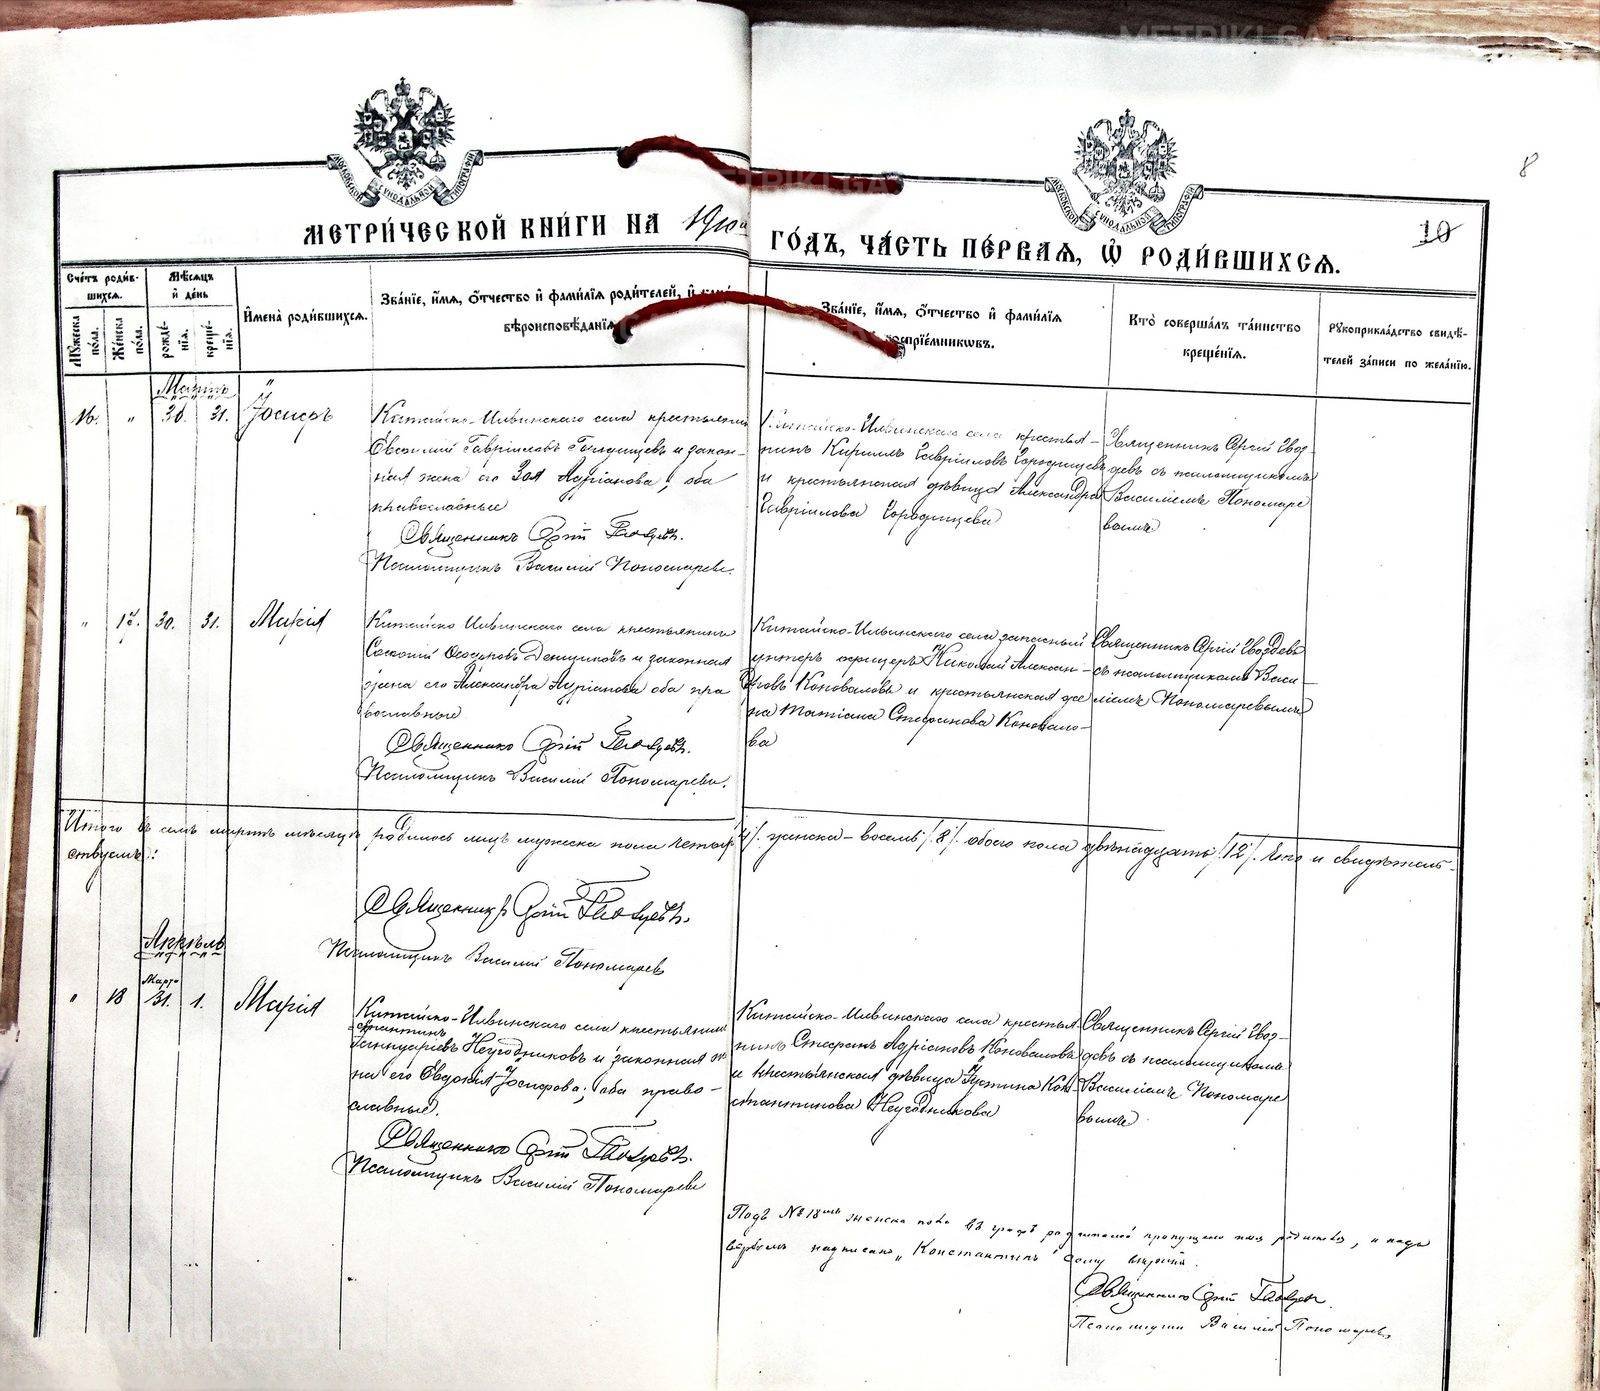 8
10
МОСКОВСКОЙ СИНОДАЛЬНОЙ ТИПОГРАФІИ
МОСКОВСКОЙ СИНОДАЛЬНОЙ ТИПОГРАФІИ
МЕТРИ́ЧЕСКОЙ КНИ́ГИ НА 1910й
ГО́ДЪ, ЧА́СТЬ ПЕ́РВАѦ, Ѡ҆ РОДИ́ВШИХСѦ.
Сче́тъ роди́в-
шихсѧ.
Мꙋ́жеска
по́ла.
Же́нска
по́ла.
Мѣ́сѧцъ
и҆ де́нь
рожде́-
нїѧ.
креще́-
нїѧ.
И҆мена̀ роди́вшихсѧ.
Зва́нїе, и҆́мѧ, ѻ҆́тчество и҆ фами́лїѧ роди́телей, и҆
вѣроисповѣ́данїѧ
Зва́нїе, и҆́мѧ, ѻ҆́тчество и҆ фами́лїѧ
воспрїе́мникѡвъ.
Кто̀ соверша́лъ та́инство
креще́нїѧ.
Рꙋкоприкла́дство свидѣ́-
телей за́писи по жела́нїю.
Мартъ
16. " 30. 31. Іосифъ
Китайско-Илвинскаго села крестьянинъ
Евфимій Гавріиловъ Городищевъ и закон-
ная жена его Зоя Адріанова, оба
православные
Священникъ Сергій Гвоздевъ.
Псаломщикъ Василій Пономаревъ.
Китайско-Илвинскаго села крестья-
нинъ Кириллъ Гавріиловъ Городищевъ
и крестьянская дѣвица Александра
Гавріилова Городищева
Священникъ Сергій Гвоз-
девъ съ псаломщикомъ
Василіемъ Пономаре
вымъ
" 17. 30. 31. Марія
Китайско Илвинскаго села крестьянинъ
Ѳеодоровъ Денщиковъ и законная
жена его Александра Адріанова оба пра
вославные
Священникъ Сергій Гвоздевъ.
Псаломщикъ Василій Пономаревъ.
Китайско-Илвинскаго села запасный
унтеръ офицеръ Николай Алексан-
дровъ Коноваловъ и крестьянская же
на Татіана Стефанова Коновало-
ва
Священникъ Сергій Гвоздевъ
съ псаломщикомъ Васи-
ліемъ Пономаревымъ
Итого въ семъ мартѣ мѣсяцѣ родилось лицъ мужеска пола четыр /4/. женска - восемь /8/. обоего пола двѣнадцать /12/. Что и свидѣтель-
ствуемъ:
Священникъ Сергій Гвоздевъ.
Псаломщикъ Василій Пономаревъ
Апрѣль
Март.
" 18 31. 1. Марія
Китайско-Илвинскаго села крестьянинъ
Константинъ
Іаннуаріевъ Неугодниковъ и законная же
на его Евдокія Іосифова; оба право-
славные.
Священникъ Сергій Гвоздевъ.
Псаломщикъ Василій Пономаревъ
Китайско-Илвинскаго села крестья
нинъ Стефанъ Адріановъ Коноваловъ
и крестьянская дѣвица Іустина Кон-
стантинова Неугодникова
Священникъ Сергій Гвоз-
девъ съ псаломщикомъ
Василіемъ Пономаре
вымъ.
Подъ № 18мъ женска пола въ графѣ родителей пропущено имя родителя, а надъ
надписано "Константинъ" сему вѣрить.
Священникъ Сергій Гвоздевъ.
Псаломщикъ Василій Пономаревъ